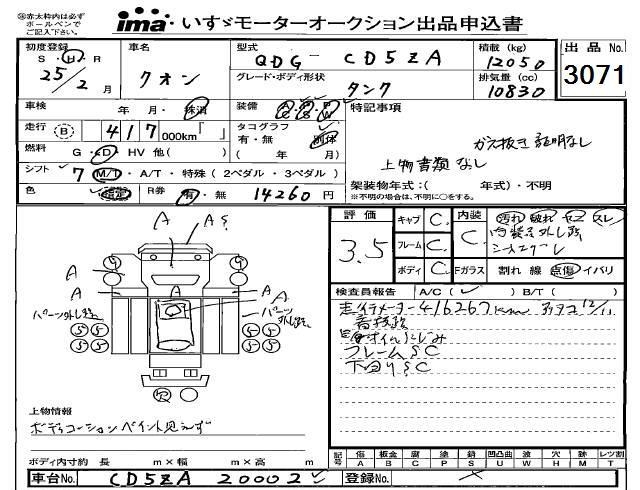 ※赤太枠内は必ず
ボールペンで
ご記入下さい。
ima いすゞモーターオークション出品申込書
初度登録 S・H・R 25/2 月
車名 クオン
型式 QDG- CD5ZA
グレード・ボディ形状 タンク
積載 (kg) 12050
排気量 (cc) 10830
出品 No. 3071
車検 年 月・抹消
装備 A/C P/S P/W
特記事項
走行 B 417 000km「 」
タコグラフ 有・無 別体 ( 年 月)
ガス抜き証明なし
燃料 G・D・HV 他( )
上物書類なし
シフト 7 M/T・A/T・特殊(2ペダル・3ペダル)
架装物年式:( 年式)・不明
※不明の場合は、不明に○をする。
色 R券 有・無 14260 円
評価 3.5
キャブ C
フレーム C
ボディ C
内装 C
Fガラス 割れ 線 点傷 イバリ
汚れ 破れ ヤニ スレ
A
A S
A
A
A
A
A
パーツ外し跡
パーツ外し跡
9 9
5 5 5 5
5 5 5 5
検査員報告 A/C( ) B/T( )
走行メーター416267km タコ12/11
フレームSC
下回りSC
上物情報
ボディコーションペイント見えず
ボディ内寸約 長 m×幅 m×高 m
記号 傷A 板金B 腐C 塗P 錆S 凹凸曲U 波W 穴H 跡M レツ割T
車台No. CD5ZA 20002
登録No.